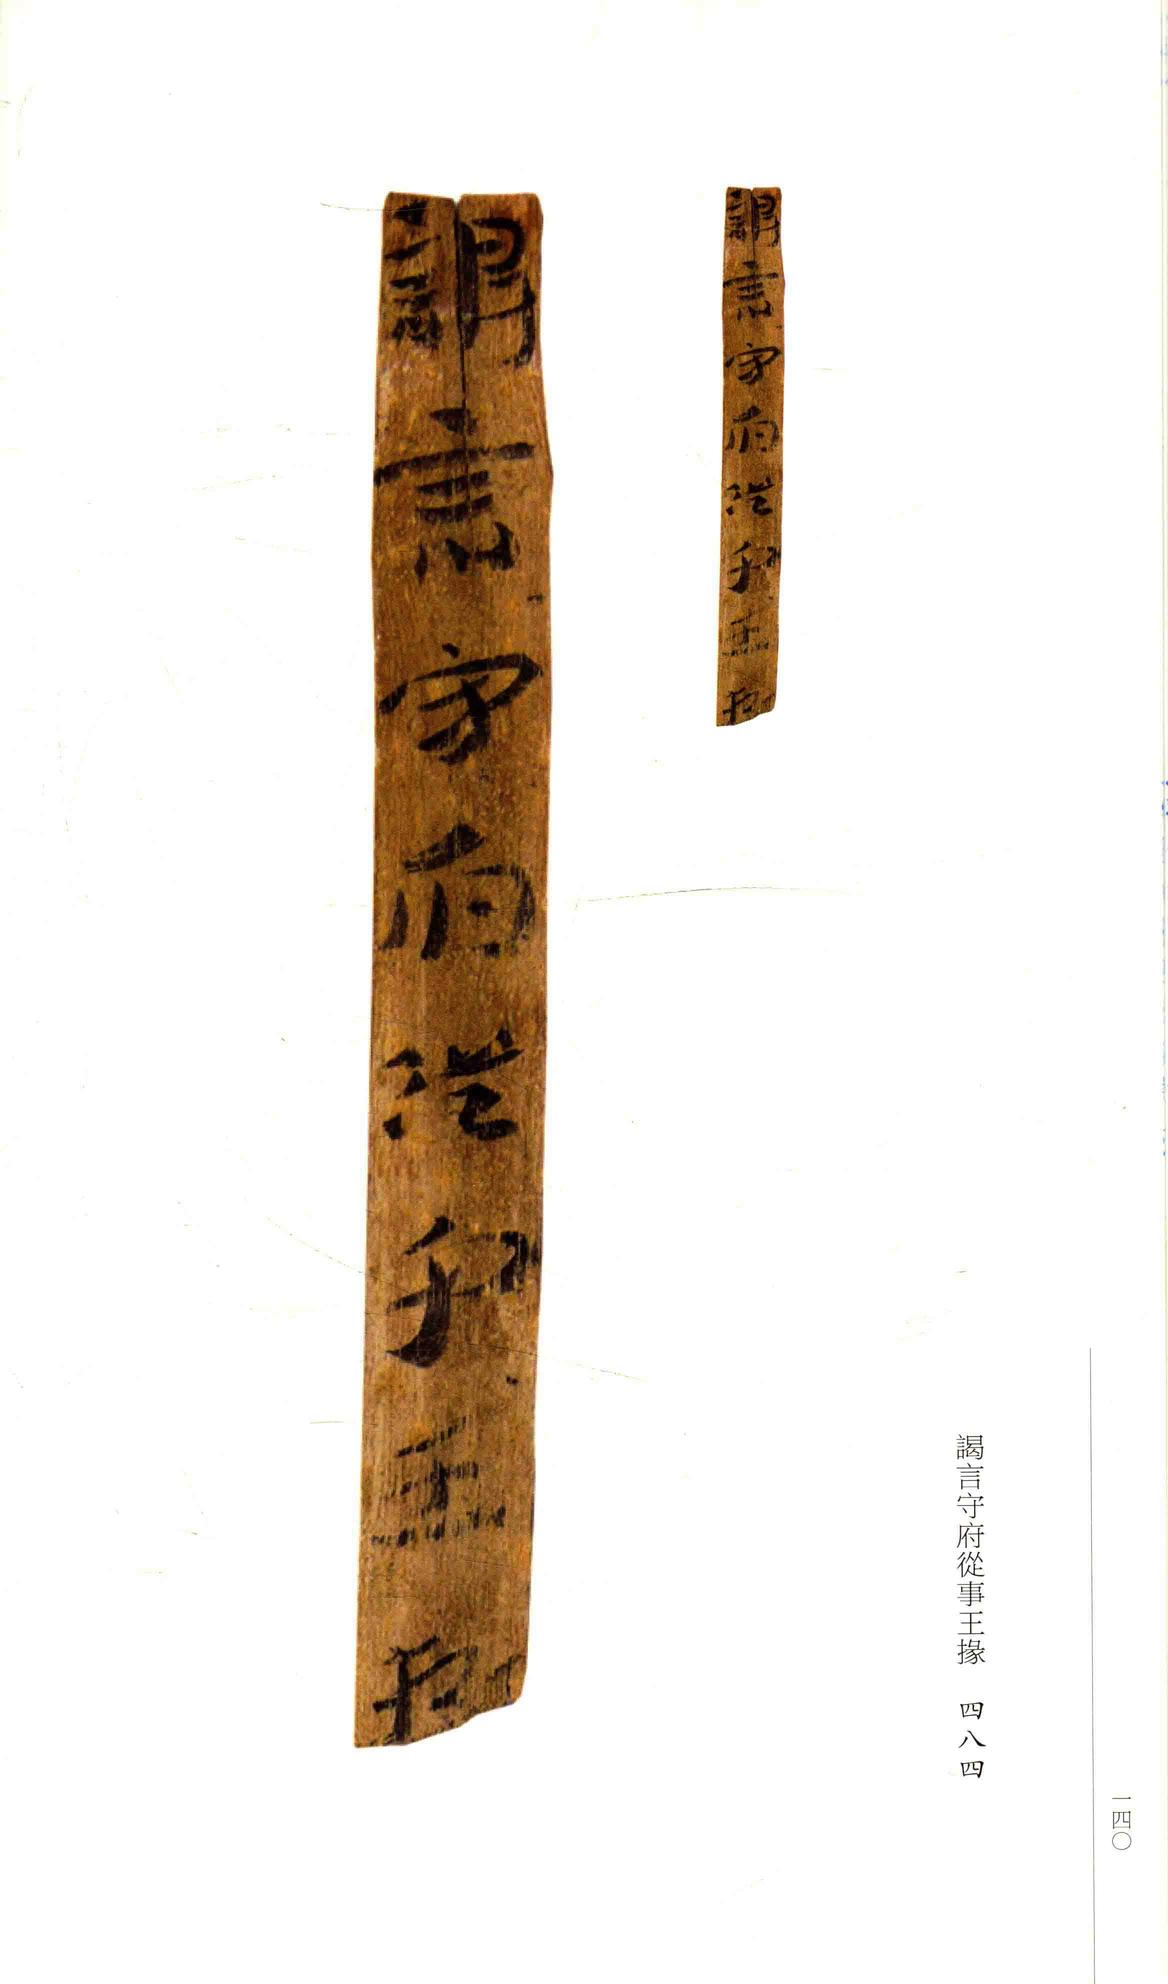 謁言守府從事王掾
謁言守府從事王掾
謁言守府從事王掾 四八四
一四〇